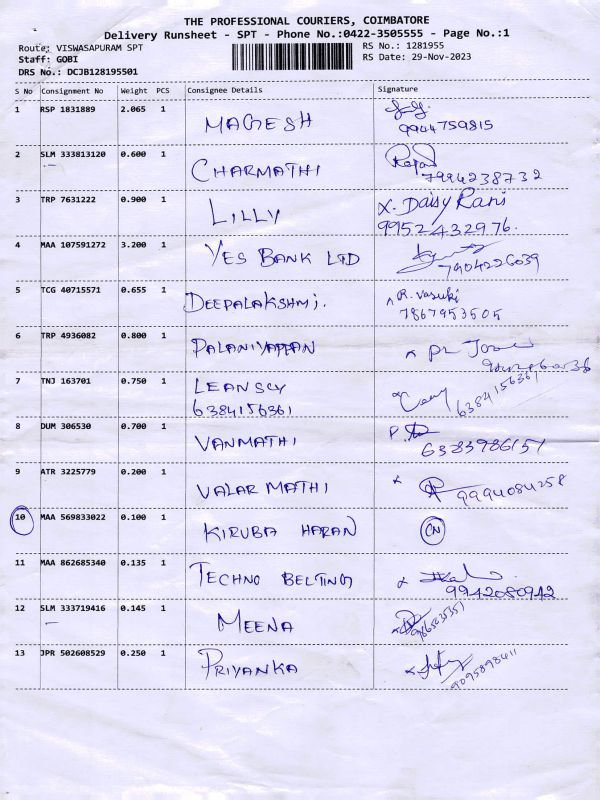 THE PROFESSIONAL COURIERS, COIMBATORE
Delivery Runsheet - SPT - Phone No.:0422-3505555 - Page No.:1
Route: VISWASAPURAM SPT RS No.: 1281955
Staff: GOBI RS Date: 29-Nov-2023
DRS No.: DCJB128195501
S No Consignment No Weight PCS Consignee Details Signature
1 RSP 1831889 2.065 1 MAGESH
9944759815
2 SLM 333813120 0.600 1 CHARMATHI
7994238732
3 TRP 7631222 0.900 1 LILLY x. Daisy Rani
9952432976.
4 MAA 107591272 3.200 1 YES BANK LTD
7904226039
5 TCG 40715571 0.655 1 DEEPALAKSHMI. R. Vasuki
7867953505
6 TRP 4936082 0.800 1 PALANIYAPPAN
7 TNJ 163701 0.750 1 LEANSCY
6384156361 6384156361
8 DUM 306530 0.700 1 VANMATHI
6383986151
9 ATR 3225779 0.200 1 VALAR MATHI 9994084258
10 MAA 569833022 0.100 1 KIRUBA HARAN CN
11 MAA 862685340 0.135 1 TECHNO BELTING
9942080942
12 SLM 333719416 0.145 1 MEENA
13 JPR 502608529 0.250 1 PRIYANKA
9095898411